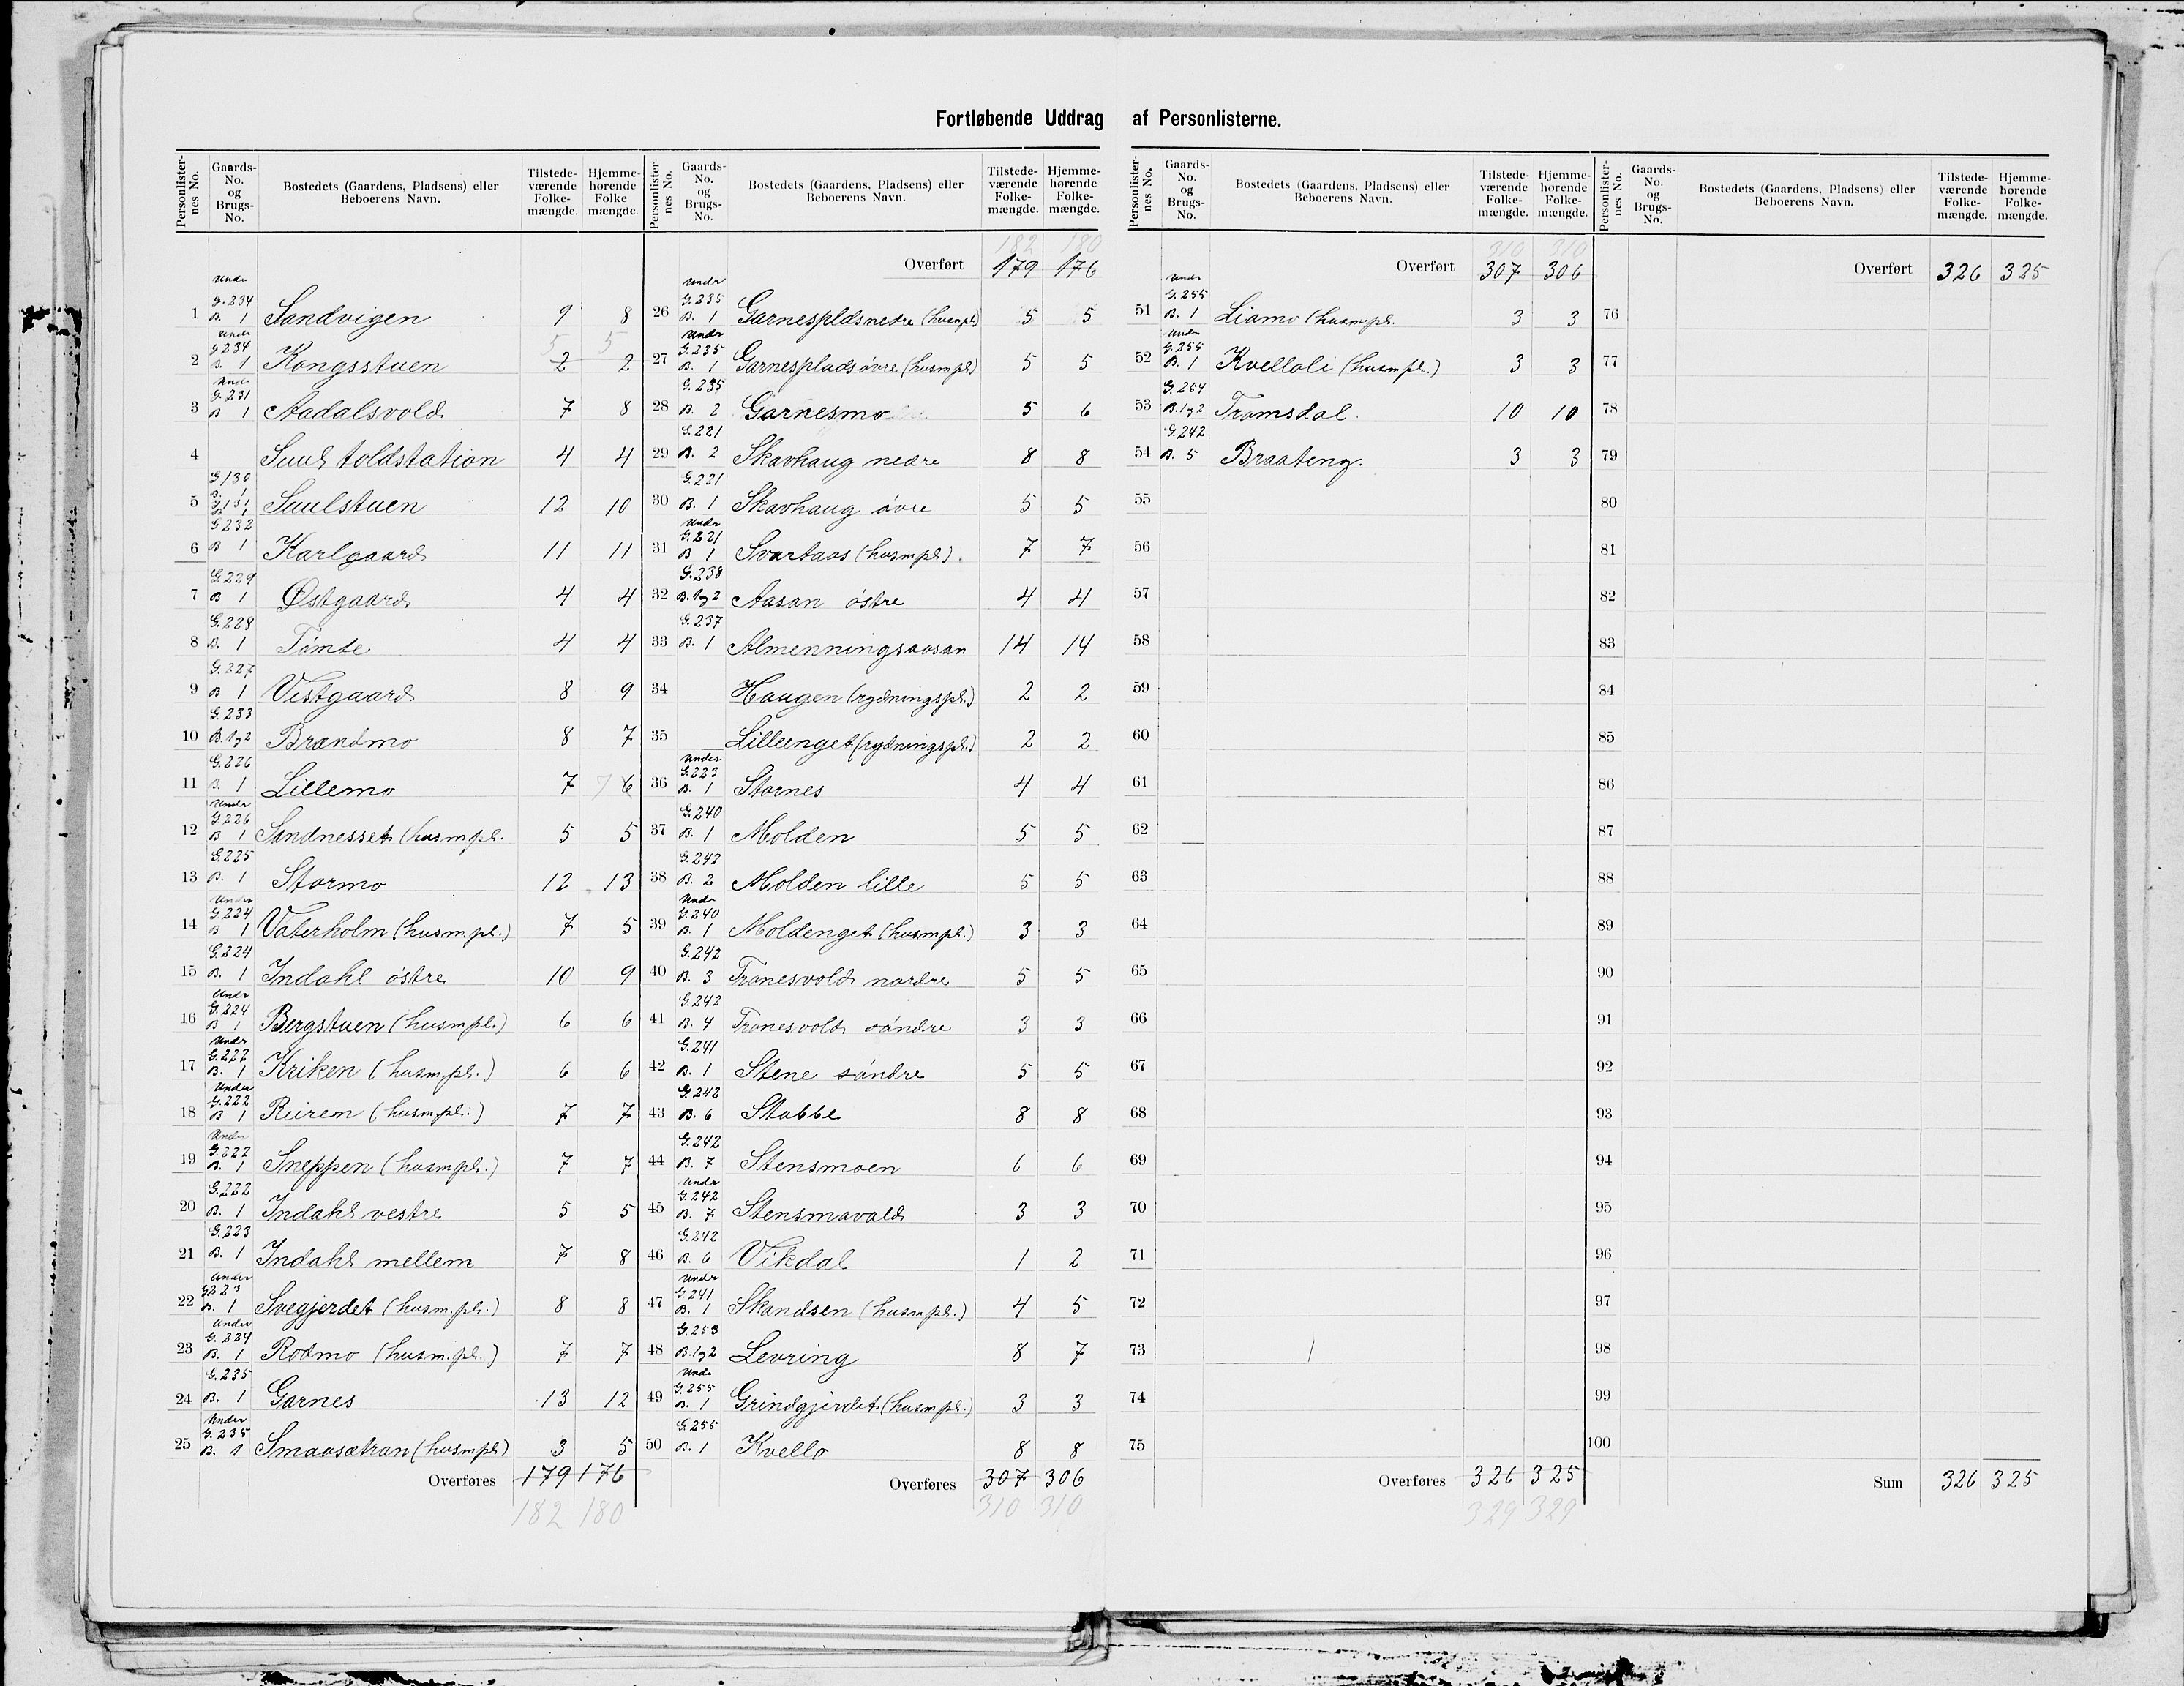 Fortløbende Uddrag af Personlisterne.
Personlisternes No. Gaards-No. og Brugs-No. Bostedets (Gaardens, Pladsens) eller Beboerens Navn. Tilstedeværende Folkemængde. Hjemmehørende Folkemængde.
1 Under G. 234 B. 1 Sandvigen 9 8
2 Under G 234 B. 1 Kongsstuen 2 2 5 5
3 Und. G. 231 B 1 Aadalsvold 7 8
4 Suul toldstation 4 4
5 G 130 B. 1 G 131 B 1 Suulstuen 12 10
6 G. 232 B 1 Karlgaard 11 11
7 G. 229 B 1 Østgaard 4 4
8 G. 228 B. 1 Tømte 4 4
9 G. 227 B 1 Vestgaard 8 9
10 G. 233 B. 1 og 2 Brændmo 8 7
11 G. 226 B. 1 Lillemo 7 7 6
12 Under G. 226 B 1 Sandnesset (husm.pl. 5 5
13 G. 225 B. 1 Stormo 12 13
14 Under G. 224 B 1 Vaterholm (husm.pl.) 7 5
15 G. 224 B. 1 Indahl østre 10 9
16 Undr G. 224 B 1 Bergstuen (husmpl.) 6 6
17 Undr G. 222 B. 1 Kriken (husm.pl.) 6 6
18 Under G. 222 B 1 Reirem (husm.pl.) 7 7
19 Under G. 222 B. 1 Sneppen (husmpl.) 7 7
20 G. 222 B. 1 Indahl vestre 5 5
21 G. 223 B. 1 Indahl mellem 7 8
22 Under G 223 B. 1 Svegjerdet (husm.pl.) 8 8
23 Under G. 234 B. 1 Rodmo (husm.pl.) 7 7
24 G. 235 B. 1 Garnes 13 12
25 Under G. 235 B. 1 Smaasætran (husmpl) 3 5
Overføres 179 176
182 180
Personlisternes No. Gaards-No. og Brugs-No. Bostedets (Gaardens, Pladsens) eller Beboerens Navn. Tilstedeværende Folkemængde. Hjemmehørende Folkemængde.
182 180
Overført 179 176
26 Undr G. 235 B. 1 Garnesplds nedre (husmpl) 5 5
27 Under G. 235 B. 1 Garnesplads øvre (husmpl) 5 5
28 G. 235 B. 2 Garnesmo 5 6
29 G. 221 B. 2 Skavhaug nedre 8 8
30 G. 221 B. 1 Skavhaug øvre 5 5
31 Undr G. 221 B 1 Svartaas (husmpl). 7 7
32 G. 238 B. 1 og 2 Aasan østre 4 4
33 G. 237 B. 1 Almenningsaasan 14 14
34 Haugen (rydningspl.) 2 2
35 Lilleenget (rydningspl.) 2 2
36 Under G. 223 B. 1 Stornes 4 4
37 G. 240 B. 1 Molden 5 5
38 G. 242 B. 2 Molden lille 5 5
39 Undr G. 240 B. 1 Moldenget (husmpl.) 3 3
40 G. 242 B. 3 Tronesvold nordre 5 5
41 G. 242 B. 4 Tronesvold søndre 3 3
42 G. 241 B. 1 Stene søndre 5 5
43 G. 242 B. 6 Stabbe 8 8
44 G. 242 B. 7 Stensmoen 6 6
45 Undr G. 242 B. 7 Stensmovald 3 3
46 G. 242 B. 6 Vikdal 1 2
47 Undr G. 241 B. 1 Skandsen (husmpl.) 4 5
48 G. 253 B. 1 og 2 Levring 8 7
49 Undr G. 255 B. 1 Grindgjerdet (husmpl.) 3 3
50 G. 255 B. 1 Kvello 8 8
Overføres 307 306
310 310
Personlisternes No. Gaards-No. og Brugs-No. Bostedets (Gaardens, Pladsens) eller Beboerens Navn. Tilstedeværende Folkemængde. Hjemmehørende Folkemængde.
310 310
Overført 307 306
51 Undr G. 255 B. 1 Liamo (husm.pl. 3 3
52 Undr G. 255 B. 1 Kvelloli (husmpl.) 3 3
53 G. 254 B. 1 og 2 Tromsdal 10 10
54 G. 242 B. 5 Braateng. 3 3
55
56
57
58
59
60
61
62
63
64
65
66
67
68
69
70
71
72
73
74
75
Overføres 326 325
329 329
Personlisternes No. Gaards-No. og Brugs-No. Bostedets (Gaardens, Pladsens) eller Beboerens Navn. Tilstedeværende Folkemængde. Hjemmehørende Folkemængde.
Overført 326 325
76
77
78
79
80
81
82
83
84
85
86
87
88
89
90
91
92
93
94
95
96
97
98
99
100
Sum 326 325